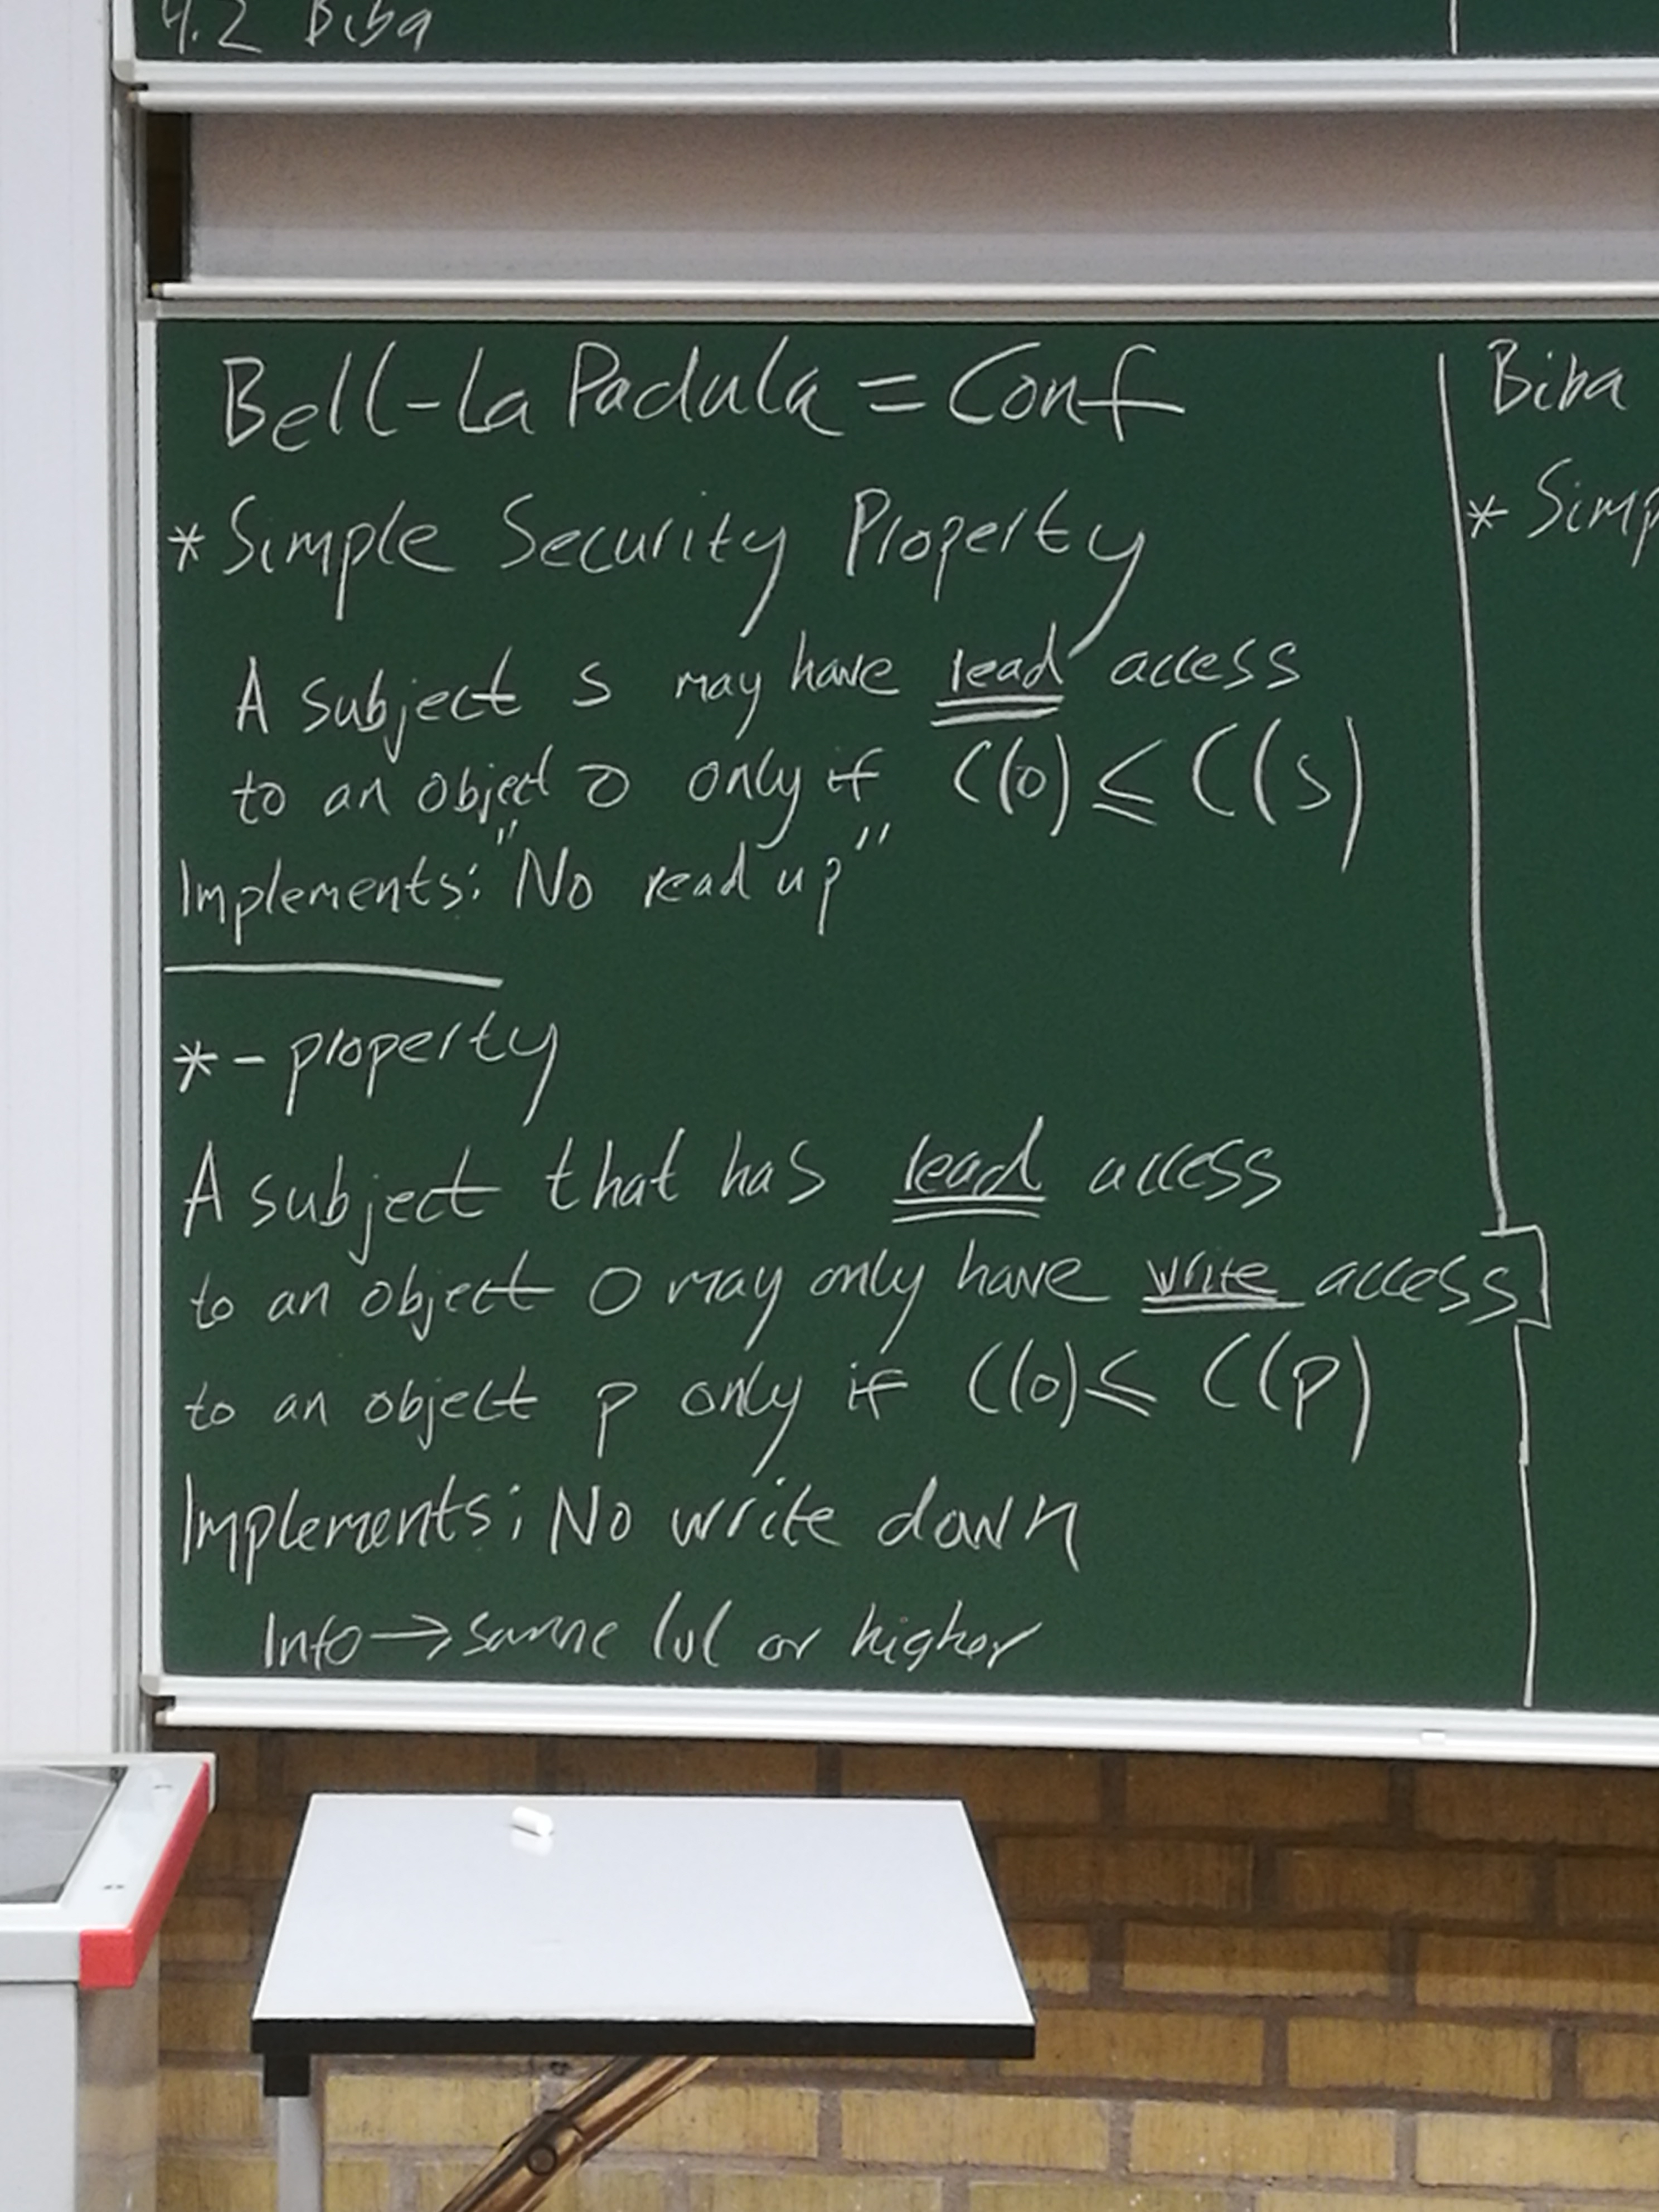 4.2 Biba
Bell-La Padula = Conf
* Simple Security Property
A subject s may have read access
to an object o only if C(o) ≤ C(s)
Implements: "No read up"
*-property
A subject that has read access
to an object o may only have write access
to an object p only if C(o) ≤ C(p)
Implements: No write down
Info → same lvl or higher
Biba
* Simp